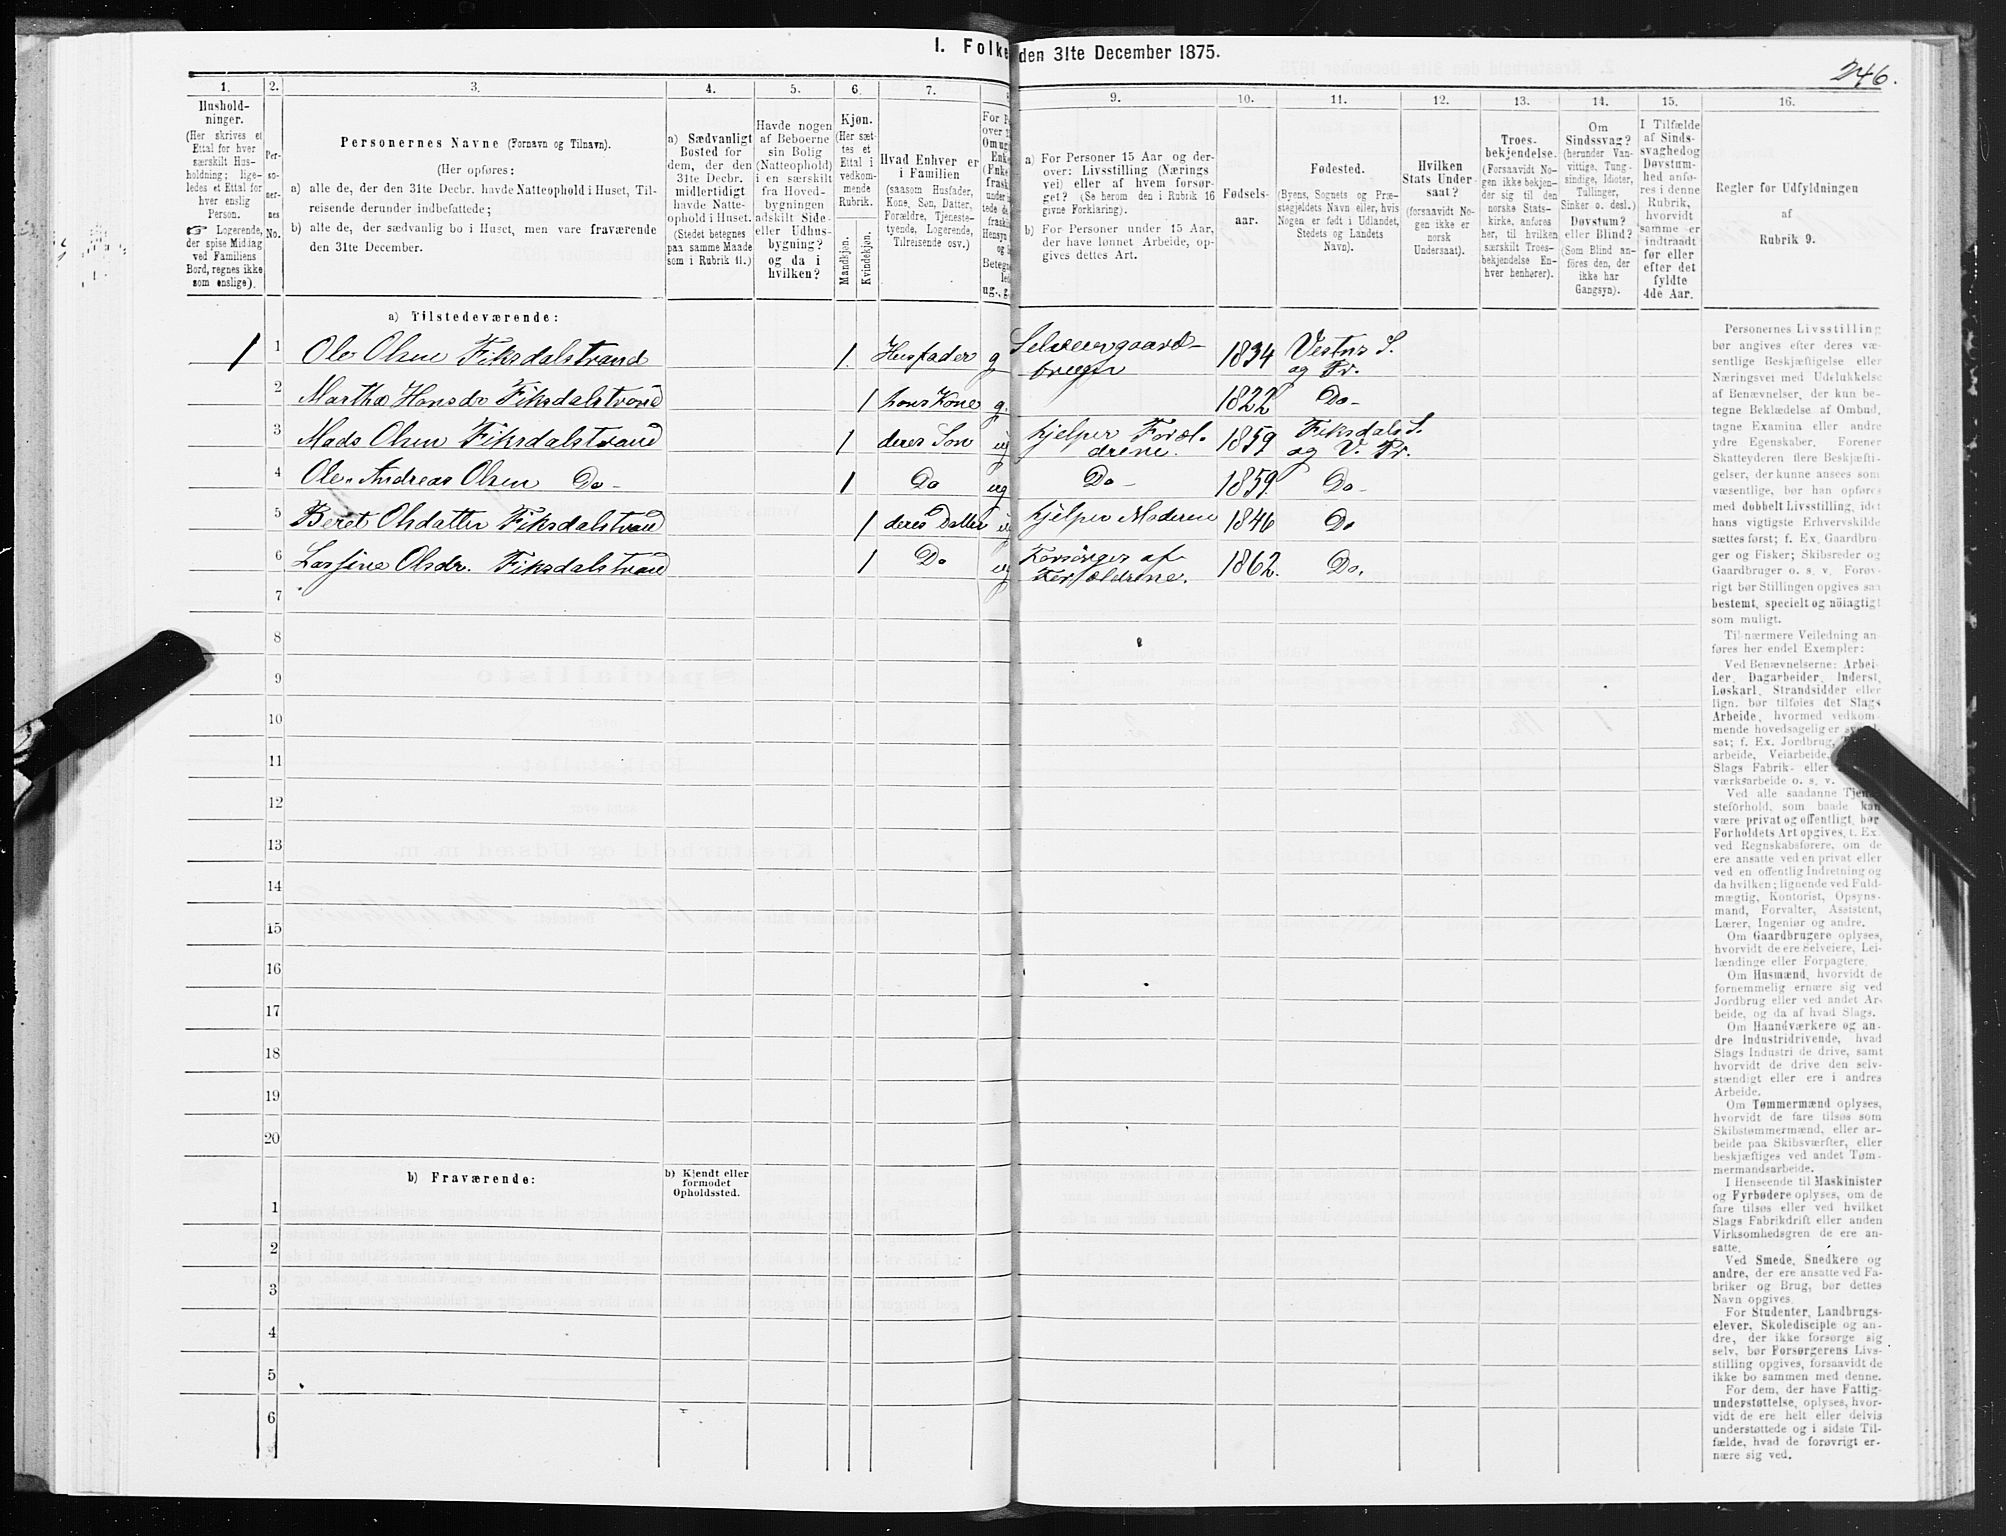 1. Folke den 31te December 1875.
246.
1. 2. 3. 4. 5. 6. 7. 8 9. 10. 11. 12. 13. 14. 15. 16.
Hushold-
ninger.
(Her skrives et
Ettal for hver
særskilt Hus-
holdning; lige-
ledes et Ettal for
hver enslig
Person.
☞ Logerende,
der spise Middag
ved Familiens
Bord, regnes ikke
som enslige).
Per-
so-
ner-
nes
No.
Personernes Navne (Fornavn og Tilnavn).
(Her opføres:
a) alle de, der den 31te Decbr. havde Natteophold i Huset, Til-
reisende derunder indbefattede;
b) alle de, der sædvanlig bo i Huset, men vare fraværende
den 31te December.
a) Sædvanligt
Bosted for
dem, der den
31te Decbr.
midlertidigt
havde Natte-
ophold i Huset.
(Stedet betegnes
paa samme Maade
som i Rubrik 11.)
Havde nogen
af Beboerne
sin Bolig
(Natteophold)
i en særskilt
fra Hoved-
bygningen
adskilt Side-
eller Udhus-
bygning?
og da i
hvilken?
Kjøn.
(Her sæt-
tes et
Ettal i
vedkom-
mende
Rubrik.
Mandkjøn.
Kvindekjøn.
Hvad Enhver er
i Familien
(saasom Husfader,
Kone, Søn, Datter,
Forældre, Tjeneste-
tyende, Logerende,
Tilreisende osv.)
a) For Personer 15 Aar og der-
over: Livsstilling (Nærings
vei) eller af hvem forsør-
get? (Se herom den i Rubrik 16
givne Forklaring).
b) For Personer under 15 Aar,
der have lønnet Arbeide, op-
gives dettes Art.
Fødsels-
aar.
Fødested.
(Byens, Sognets og Præ-
stegjeldets Navn eller, hvis
Nogen er født i Udlandet,
Stedets og Landets
Navn).
Hvilken
Stats Under-
saat?
(forsaavidt No-
gen ikke er
norsk
Undersaat).
Troes-
bekjendelse.
(Forsaavidt No-
gen ikke bekjen-
der sig til den
norske Stats-
kirke, anføres
her, til hvilken
særskilt Troes-
bekjendelse En-
hver henhører).
Om
Sindssvag?
(herunder Van-
vittige, Tung-
sindige, Idioter,
Tullinger,
Sinker o. desl.)
Døvstum?
eller Blind?
(Som Blind an-
føres den, der
ikke har
Gangsyn).
I Tilfælde
af Sinds-
svaghed og
Døvstum-
hed anfø-
res i denne
Rubrik,
hvorvidt
samme er
indtraadt
før eller
efter det
fyldte
4de Aar.
Regler for Udfyldningen
af
Rubrik 9.
a) Tilstedeværende:
1 1 Ole Olsen Fiksdalstrand 1. Husfader g Selveiergaard-
bruger 1834 Vestns S.
og Pr.
2 Martha Hansdr Fiksdalstrand 1 hans Kone g. 1822 Do-
3 Mads Olsen Fiksdalstrand 1 deres Søn ug hjelper Foræl-
drene. 1859 Fiksdals S.
og V. Pr.
4 Ole Andreas Olsen Do- 1 Do ug Do- 1859. Do-
5 Beret Olsdatter Fiksdalstrand 1 deres Datter ug hjelper Moderen 1846 Do
6 Larsine Olsdr. Fiksdalstrand 1 Do ug Forsørges af
Forældrene. 1862. Do.
7
8
9
10
11
12
13
14
15
16
17
18
19
20
b) Fraværende:
b) Kjendt eller
formodet
Opholdssted.
1
2
3
4
5
6
Personernes Livsstilling
bør angives efter deres væ-
sentlige Beskjæftigelse eller
Næringsvei med Udelukkelse
af Benævnelser, der kun be-
tegne Beklædelse af Ombud,
tagne Examina eller andre
ydre Egenskaber. Forener
Skatteyderen flere Beskjæfti-
gelser, der kunne ansees som
væsentlige, bør han opføres
med dobbelt Livsstilling, idet
hans vigtigste Erhvervskilde
sættes først; f. Ex. Gaardbru-
ger og Fisker; Skibsreder og
Gaardbruger o. s. v. Forøv-
rigt bør Stillingen opgives saa
bestemt, specielt og nöiagtigt
som muligt.
Til nærmere Veiledning an-
føres her endel Exempler:
Ved Benævnelserne: Arbei-
der, Dagarbeider, Inderst,
Løskarl, Strandsidder eller
lign. bør tilføies det Slags
Arbeide, hvormed vedkom-
mende hovedsagelig er syssel-
sat; f. Ex. Jordbrug,
arbeide, Veiarbeide,
Slags Fabrik- eller
værksarbeide o. s. v.
Ved alle saadanne Tjene-
steforhold, som baade kan
være privat og offentligt, bør
Forholdets Art opgives, t. Ex.
ved Regnskabsførere, om de
ere ansatte ved en privat eller
ved en offentlig Indretning og
da hvilken; lignende ved Fuld-
mægtig, Kontorist, Opsyns-
mand, Forvalter, Assistent,
Lærer, Ingeniør og andre.
Om Gaardbrugere oplyses,
hvorvidt de ere Selveiere, Lei-
lændinge eller Forpagtere.
Om Husmænd, hvorvidt de
fornemmelig ernære sig ved
Jordbrug eller ved andet Ar-
beide, og da af hvad Slags.
Om Haandværkere og an-
dre Industridrivende, hvad
Slags Industri de drive, samt
hvorvidt de drive den selv-
stændigt eller ere i andres
Arbeide.
Om Tømmermænd oplyses,
hvorvidt de fare tilsøs som
Skibstømmermænd, eller ar-
beide paa Skibsværfter, eller
beskjæftiges ved andet Tøm-
mermandsarbeide.
I Henseende til Maskinister
og Fyrbødere oplyses, om de
fare tilsøs eller ved hvilket
Slags Fabrikdrift eller anden
Virksomhedsgren de ere an-
satte.
Ved Smede, Snedkere og
andre, der ere ansatte ved Fa-
briker og Brug, bør dettes
Navn opgives.
For Studenter, Landbrugs-
elever, Skoledisciple og an-
dre, der ikke forsørge sig
selv, bør Forsørgerens Livs-
stilling opgives, forsaavidt de
ikke bo sammen med denne.
For dem, der have Fattig-
understøttelse, oplyses, hvor-
vidt de ere helt eller delvis
understøttede og i sidste Til-
fælde, hvad de forøvrigt er-
nære sig ved.